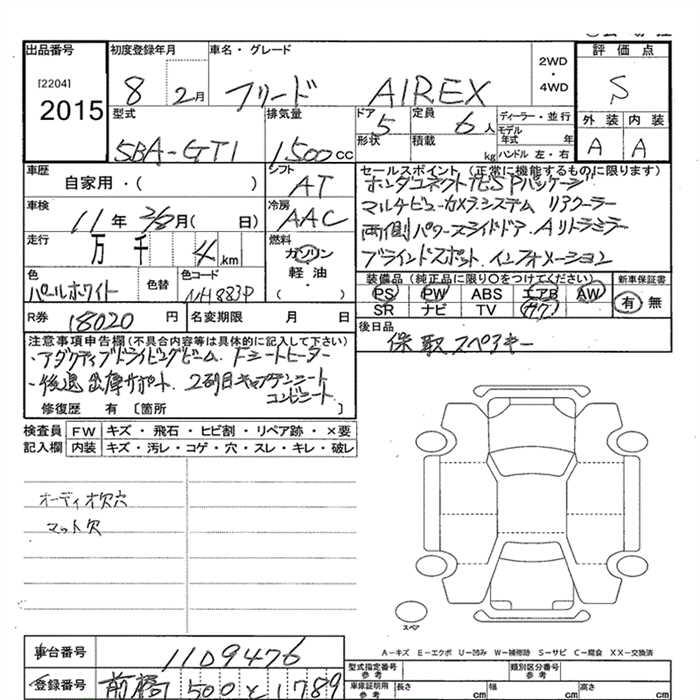 出品番号
[2204]
2015
初度登録年月
8 2月
車名・グレード
フリード AIREX
2WD
・
4WD
評価点
S
外装 内装
A A
型式
5BA-GT1
排気量
1500cc
ドア
5
形状
定員
6人
積載
kg
ディーラー・並行
モデル
年式 年
ハンドル 左・右
車歴
自家用・( )
シフト
AT
車検
11年 2/8月( 日)
冷房
AAC
走行
万 千 4 km
燃料
ガソリン
軽油・
( )
色
パールホワイト
色替
色コード
NH883P
R券 18020 円
名変期限 月 日
セールスポイント (正常に機能するものに限ります)
ホンダコネクト TES Pパッケージ
マルチビューカメラシステム リアクーラー
両側パワースライドドア. Aリトラミラー
ブラインドスポット. インフォメーション
装備品(純正品に限り○をつけてください)
PS PW ABS エアB AW
SR ナビ TV カワ
新車保証書
有 無
後日品
保 取 スペアキー
注意事項申告欄(不具合内容等は具体的に記入して下さい)
・アダクティブドライビングビーム. Fシートヒーター
・後退出庫サポート. 2列目キャプテンシート
コンビシート
修復歴 有 〔箇所 〕
検査員 FW キズ・飛石・ヒビ割・リペア跡・×要
記入欄 内装 キズ・汚レ・コゲ・穴・スレ・キレ・破レ
オーディオ欠穴
マット欠
スペア
A－キズ E－エクボ U－凹み W－補修跡 S－サビ C－腐食 XX－交換済
車台番号 1109476
登録番号 前橋 500 と 1789
型式指定番号
参考
類別区分番号
参考
車庫証明用
参考
長さ cm
幅 cm
高さ cm